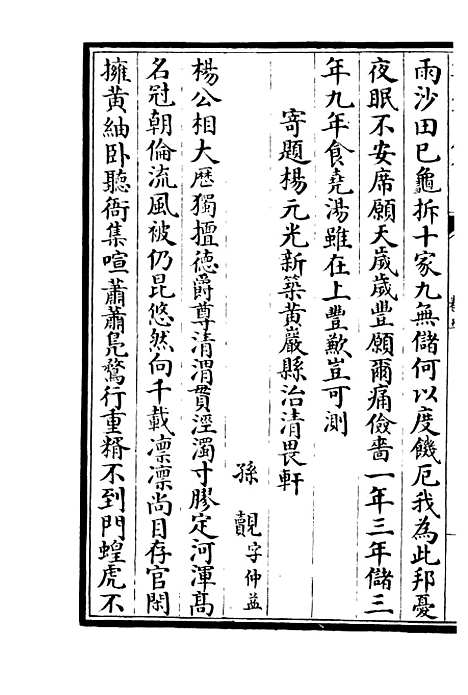 雨沙田已龜拆十家九無儲何以度饑厄我為此邦憂
夜眠不安席願天歲歲豐願爾痛儉嗇一年三年儲三
年九年食堯湯雖在上豐歉豈可測
寄題楊元光新築黃巖縣治清畏軒
孫覿字仲益
楊公相大歷獨擅德爵尊清渭貫涇濁寸膠定河渾髙
名冠朝倫流風被仍昆悠然向千載凛凛尚目存官閑
擁黃紬卧聽衙集喧蕭蕭鳧鶩行重糈不到門蝗虎不